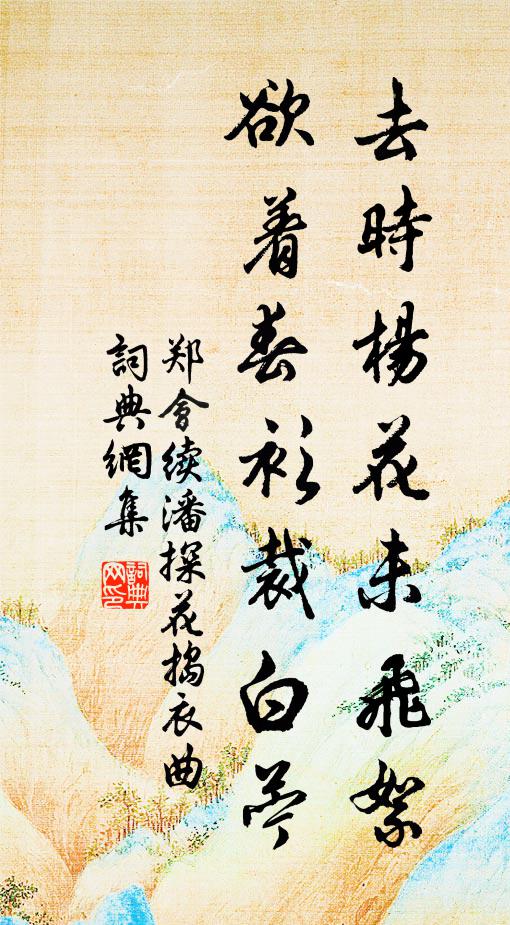 去時楊花未飛絮
欲着春衫裁白苧
郑會续潘探花搗衣曲
詞典網集
詞典网印